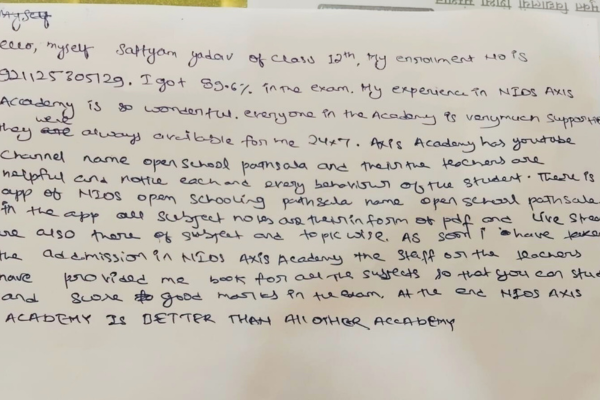 Myself
ello, myself Sattyam yadav of class 12th, My enrolment no is
921125305129. I got 89.6% in the exam. My experience in NIOS AXIS
Accademy is so wonderful. everyone in the Academy is verymuch supportive
they were always available for me 24x7. Axis Academy has youtube
channel name open school pathsala and their the teachers are
helpful and notice each and every behaviour of the student. There is
app of NIOS open schooling pathsala name open school pathsala
in the app all subject notes are their in form of pdf and live stream
are also there of subject and topic wise. As soon i have taken
the addmission in NIOS Axis Academy the staff or the teachers
have provided me book for all the subjects so that you can study
and score good marks in the exam. At the end NIOS AXIS
ACADEMY IS BETTER THAN All OTHER ACCADEMY